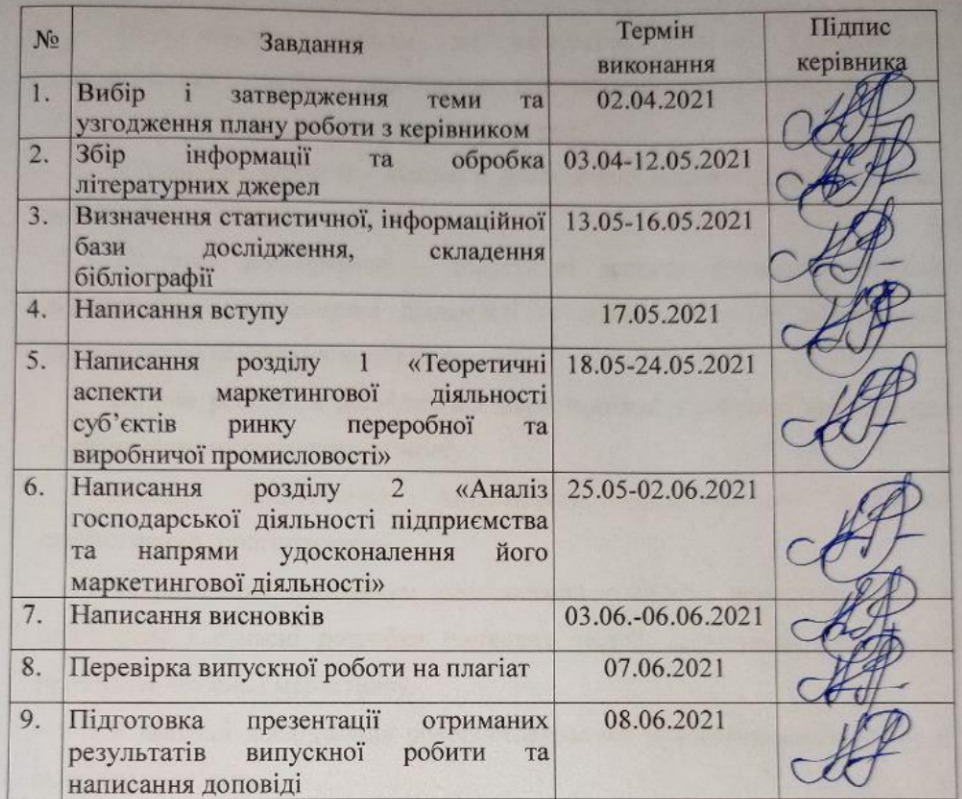 № Завдання Термін виконання Підпис керівника
1. Вибір і затвердження теми та 02.04.2021
узгодження плану роботи з керівником
2. Збір інформації та обробка 03.04-12.05.2021
літературних джерел
3. Визначення статистичної, інформаційної 13.05-16.05.2021
бази дослідження, складення
бібліографії
4. Написання вступу 17.05.2021
5. Написання розділу 1 «Теоретичні 18.05-24.05.2021
аспекти маркетингової діяльності
суб’єктів ринку переробної та
виробничої промисловості»
6. Написання розділу 2 «Аналіз 25.05-02.06.2021
господарської діяльності підприємства
та напрями удосконалення його
маркетингової діяльності»
7. Написання висновків 03.06.-06.06.2021
8. Перевірка випускної роботи на плагіат 07.06.2021
9. Підготовка презентації отриманих 08.06.2021
результатів випускної робити та
написання доповіді